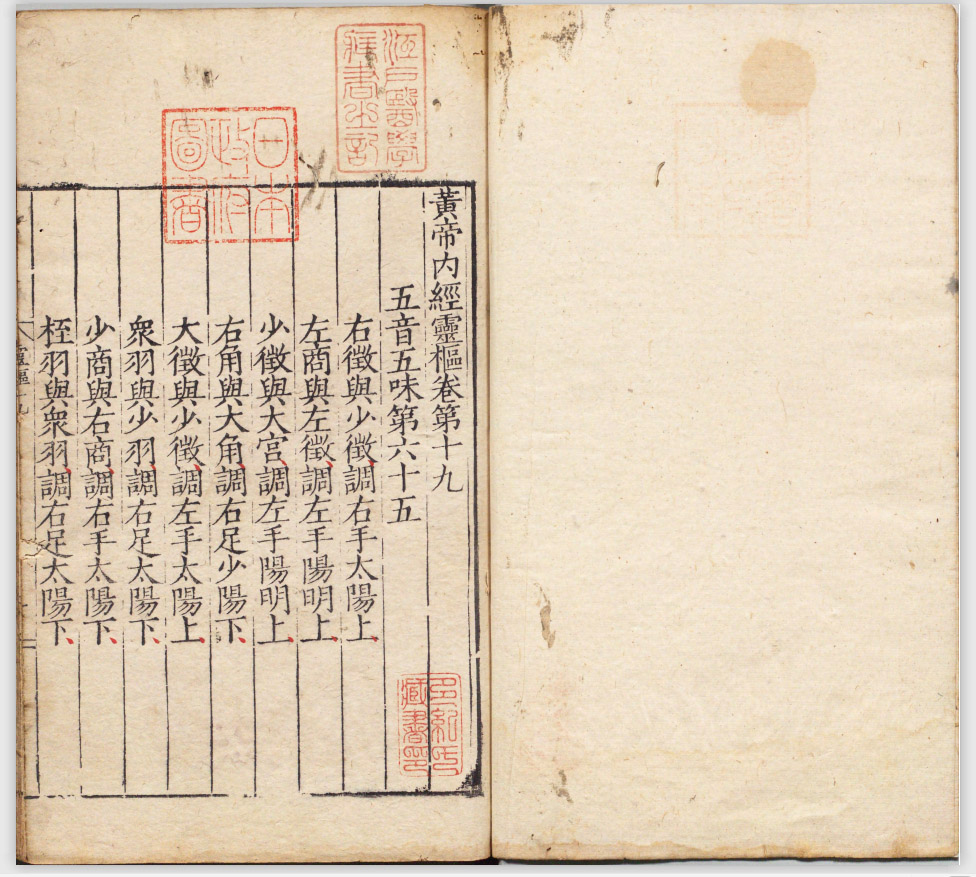 黃帝內經靈樞卷第十九
五音五味第六十五
右徵與少徵、調右手太陽上、
左商與左徵、調左手陽明上、
少徵與大宮、調左手陽明上、
右角與大角、調右足少陽下、
大徵與少徵、調左手太陽上、
衆羽與少羽、調右足太陽下、
少商與右商、調右手太陽下、
桎羽與衆羽、調右足太陽下、
靈樞十九
江戶醫學
藏書之記
日本
政府
圖書
藏書印